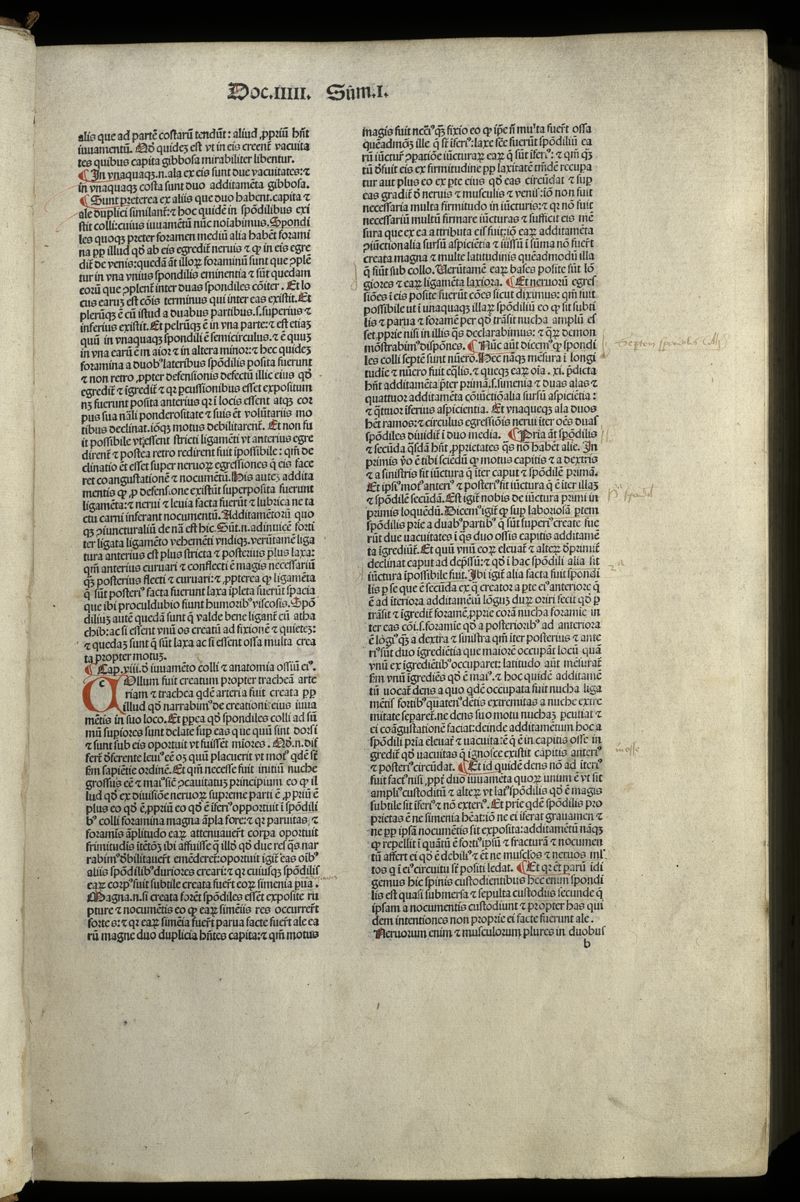 Doc.IIII. Sūm.I.
alis que ad partē costarū tendūt: aliud ꝓpriū hn̄t
iuuamentū. Nō quidez est vt in eis creent̄ vacuita
tes quibus capita gibbosa mirabiliter libentur.
¶ In vnaquaqz.n.ala ex eis sunt due vacuitates:⁊
in vnaquaqz costa sunt duo additamēta gibbosa.
¶ Sunt preterea ex aliis que duo habent.capita ⁊
ale duplici similant̄:⁊ hoc quidē in spōdilibus exi
stit colli:cuius iuuamētū nūc noiabimus.Spondi
les quoqz preter foramen mediū alia habēt forami
na pp illud qd̄ ab eis egredit̄ neruis ⁊ ꝙ in eis egre
dit̄ de venis:quedā āt illoꝝ foraminū sunt que ꝯplē
tur in vna vnius spondilis eminentia ⁊ sūt quedam
eorū que ꝯplent̄ inter duas spondiles cōiter. Et lo
cus earuz est cōis terminus qui inter eas existit. Et
plerūqz ē cū istud a duabus partibus.s.superius ⁊
inferius existit. Et pelrūqz ē in vna parte:⁊ est etiaz
quū in vnaquaqz spondili ē semicirculus.⁊ ē quuz
in vna earū ē maior ⁊ in altera minor:⁊ hec quidez
foramina a duob⁹ lateribus spōdilis posita fuerunt
⁊ non retro ꝓpter defensionis defectū illic eius qd̄
egredit̄ ⁊ igredit̄ ⁊ qꝛ pcussionibus esset expositum
nz fuerunt posita anterius qꝛ i locis essent atqz cor
pus sua nāli ponderositate ⁊ suis ēt volūtariis mo
tibus declinat.ioqz motus debilitarent̄. Et non fu
it possibile vtqz essent stricti ligamēti vt anterius egre
dirent̄ ⁊ postea retro redirent fuit ipossibile: qm̄ de
clinatio ēt esset super neruoꝝ egressiones q̄ eis face
ret coangustationē ⁊ nocumētū.His autez addita
mentis ꝙ ꝓ defensione existūt superposita fuerunt
ligamēta:⁊ nerui ⁊ leuia facta fuerūt ⁊ lubrica ne ta
ctu carni inferant nocumentū. Additamētorū quo
qz ꝯiuncturaliū de nā est hic.Sūt.n.adinuicē forti
ter ligata ligamēto vehemēti vndiqz.verūtamē liga
tura anterius est plus stricta ⁊ posterius plus laxa:
qm̄ anterius curuari ⁊ conflecti ē magis necessariū
qz posterius flecti ⁊ curuari:⁊ ꝓpterea ꝙ ligamēta
q̄ sūt posteri⁹ facta fuerunt laxa ipleta fuerūt spacia
que ibi proculdubio fiunt humorib⁹ viscosis. Spō
diliuz autē quedā sunt q̄ valde bene ligant̄ cū atha
chib:ac si essent vnū os creatū ad fixionē ⁊ quietez:
⁊ quedaz sunt q̄ sūt laxa ac si essent ossa multa crea
ta propter motuz.
¶ Cap.viii.d̄ iuuamēto colli ⁊ anatomia ossiū ei⁹.
COllum fuit creatum propter tracheā arte
riam ⁊ trachea qdē arteria fuit creata pp
illud qd̄ narrabim⁹ de creationi eius iuua
mētis in suo loco. Et ppea qd̄ spondiles colli ad sū
mū supiores sunt delate sup eas que quū sint dorsi
⁊ sunt sub eis oportuit vt fuissēt miores. Nō.n.dif
fert dr̄ferente leui⁹ cē oz quū placuerit vt mot⁹ qdē sit
fm sapiētie ordinē. Et qm̄ necesse fuit initiū nuche
grossius cē ⁊ mai⁹ sic ꝯcauitatuz principium eo ꝙ il
lud qd̄ ex diuisiōne neruoꝝ supreme parti ē ꝓpriū ē
plus eo qd̄ ē ꝓpriū eo qd̄ ē iferi⁹ opportuit i spōdili
b⁹ colli foramina magna āpla fore:⁊ qꝛ paruitas ⁊
foramis āplitudo eaꝝ attenuauert̄ corpa oportuit
firmitudis itētōz ibi affuisse q̄ illd̄ qd̄ due res q̄s nar
rabim⁹ dbilitauert̄ emēderet̄:oportuit igit̄ eas oib⁹
aliis spōdilib⁹duriores creari:⁊ qꝛ cuiusqz spōdilis
eaꝝ corp⁹ fuit subtile creata fuert̄ eoꝝ simenia pua.
Magna.n.si creata forēt spōdiles essēt exposite ru
pture ⁊ nocumētis eo ꝙ eaꝝ simēiis res occurrēt
forte s:⁊ qꝛ eaꝝ simēia fuert̄ parua facte fuert̄ ale ea
rū magne duo duplicia hn̄tes capita:⁊ qm̄ motus
magis fuit neci⁹ qz fixio eo ꝙ ipē n̄ multa fuert̄ ossa
quēadmōz ille q̄ st̄ iferi⁹:laxe sēe fuerūt spōdiliū ea
rū iūctur̄ ꝯpatiōe iūcturaꝝ eaꝝ q̄ sūt iferi⁹: ⁊ qm̄ qz
tū d̄fuit eis ex firmitudine pp laxitatē tm̄dē recupa
tur aut plus eo ex pte eius qd̄ eas circūdat ⁊ sup
eas gradit̄ d̄ neruis ⁊ musculis ⁊ venis:iō non fuit
necessaria multa firmitudo in iūcturis:⁊ qꝛ nō fuit
necessariū multū firmare iūcturas ⁊ sufficit eis mē
sura que ex ea attributa eis fuit:iō eaꝝ additamēta
ꝯiūctionalia sursū aspiciētia ⁊ iussū i sūma nō fuert̄
creata magna ⁊ multe latitudinis quēadmodū illa
q̄ sūt sub collo. Verūtamē eaꝝ bases posite sūt lō
giores ⁊ eaꝝ ligamēta laxiora. ¶ Et neruorū egres
siōes i eis posite fuerūt cōes sicut diximus: qm̄ fuit
possibile ut i unaquaqz illaꝝ spōdiliū eo ꝙ sit subti
lis ⁊ parua ⁊ foramē per qd̄ trāsit nucha amplū es
set pprie nisi in illis q̄s declarabimus: ⁊ q̄ꝝ demon
mōstrabim⁹dispōnes. ¶ Nūc aūt Dicem⁹ꝙ spondi
les colli septē sunt nūero.Hec nāqz mēsura i longi
tudie ⁊ nūero fuit eq̄lis.⁊ queqz eaꝝ oia. xi. p̄dicta
hn̄t additamēta p̄ter primā.s.simenia ⁊ duas alas ⁊
quattuor additamēta cōiūctiōalia sursū aspiciētia:
⁊ q̄ttuor iferius aspicientia. Et vnaqueqz ala duos
hēt ramos:⁊ circulus egressiōis nerui iter oēs duas
spōdiles diuidit̄ i duo media. ¶ Pria āt spōdilis
⁊ secūda q̄sdā hn̄t ꝓprietates q̄s nō habēt alie. In
primis v̄o ē tibi sciēdū ꝙ motus capitis ⁊ a dextris
⁊ a sinistris fit iūctura q̄ iter caput ⁊ spōdilē primā.
Et ipsi⁹mot⁹anteri⁹ ⁊ posteri⁹fit iūctura q̄ ē iter illaz
⁊ spōdilē secūdā.Est igit̄ nobis de iūctura primi in
primis loquēdū.Dicem⁹igit̄ ꝙ sup laboriosā ptem
spōdilis prie a duab⁹partib⁹ q̄ sūt superi⁹create fue
rūt due uacuitates i q̄s duo ossis capitis additamē
ta igrediūt̄. Et quū vnū eoꝝ eleuat̄ ⁊ alteꝝ dp̄rimit̄
declinat caput ad depssū:⁊ qd̄ i hac spōdili alia fit
iūctura ipossibile fuit.Ibi igit̄ alia facta fuit spondi
lis p se que ē secūda ex q̄ creator a pte ei⁹anteriore q̄
ē ad iteriora additamētū lōguz duꝝ oriri fecit qd̄ p
trāsit ⁊ igredit̄ foramē.pprie corā nucha foramie in
ter eas cōi.s.foramie qd̄ a posteriorib⁹ ad anteriora
ē lōgi⁹qz a dextra ⁊ sinistra qm̄ iter posterius ⁊ ante
ri⁹sūt duo igrediētia que maiorē occupāt locū quā
vnū ex igrediētib⁹occuparet: latitudo aūt mēsurat̄
fm vnū igrediēs qd̄ ē mai⁹. ⁊ hoc quidē additamē
tū uocat̄ dens a quo qdē occupata fuit nucha liga
mētis fortib⁹quaten⁹dētis extremitas a nuche extre
mitate separet̄.ne dens suo motu nuchaz pcutiat ⁊
ei coāgustationē faciat:deinde additamētum hoc a
spōdili pria eleuat̄ ⁊ uacuitatē q̄ ē in capitis osse in
gredit̄ qd̄ uacuitas q̄ ignosce existit capitis anteri⁹
⁊ posteri⁹circūdat. ¶ Et id quidē dens nō ad iteri⁹
fuit fact⁹nisi ꝓpt̄ duo iuuamēta quoꝝ unum ē vt sit
ampli⁹custoditū ⁊ alteꝝ vt lat⁹spōdilis qd̄ ē magis
subtile sit iferi⁹⁊ nō exteri⁹. Et prie qdē spōdilis pro
prietas ē ne simenia hēat:iō ne ei iferat grauamen ⁊
ne pp ipsā nocumētis sit exposita:additamētū nāqz
ꝙ repellit i quātū ē forti⁹ipsū ⁊ fracturā ⁊ nocumen
tū affert ei qd̄ ē debile⁹⁊ ēt ne musclos ⁊ neruos ml̄
tos q̄ i ei⁹circuitu st̄ positi ledat. ¶ Et qꝛ ēt parū idi
gemus hic spinis custodientibus hec enim spondi
lis est quasi submersa ⁊ sepulta custodiis secunde q̄
ipsam a nocumentis custodiunt ⁊ propter has qui
dem intentiones non proprie ei facte fuerunt ale.
Neruorum enim ⁊ musculorum plures in duobus
b